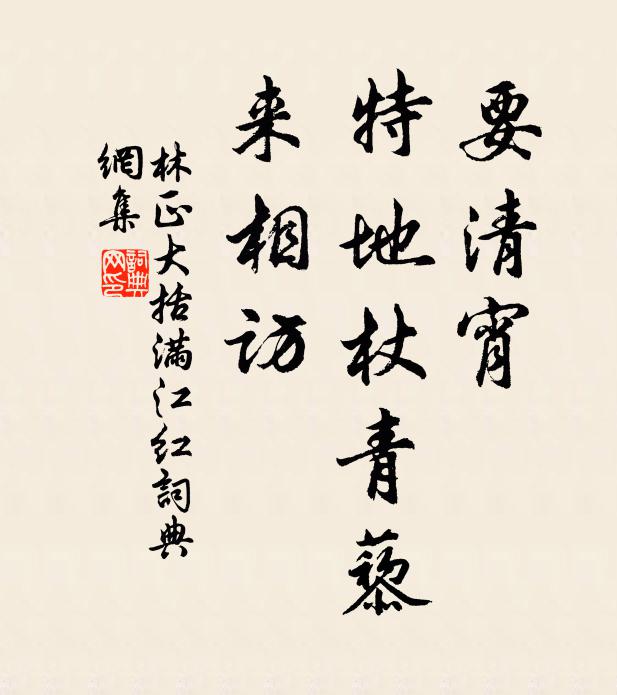 要清宵
特地杖青藜
来相访
林正大括满江红詞典
網集
詞典
网印